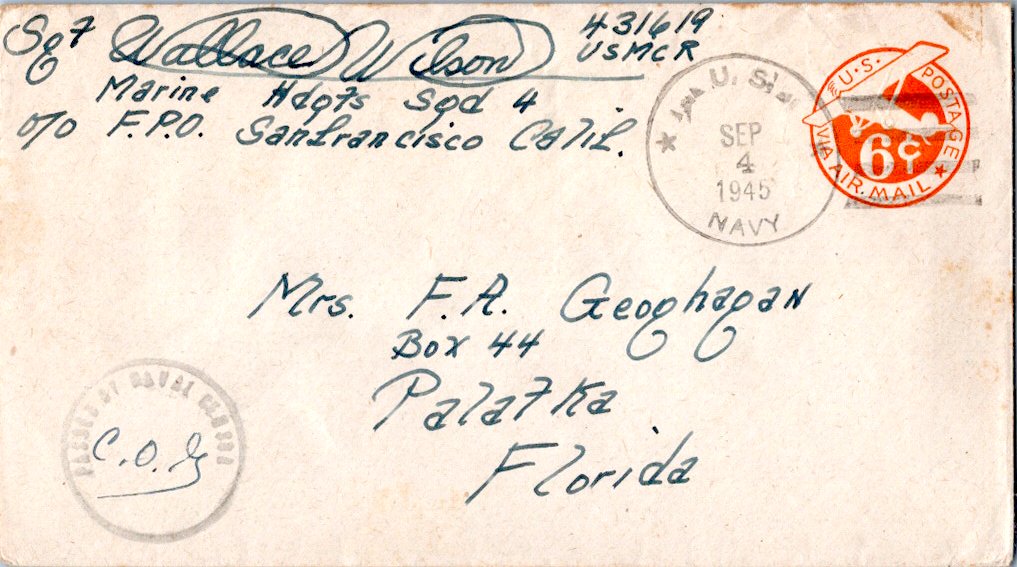 Sgt Wallace Wilson 431619
USMCR
Marine Hdqts Sqd 4
c/o F.P.O. Sanfrancisco Calif.
U. S.
SEP
4
1945
NAVY
U.S. POSTAGE
6¢
VIA AIR MAIL
Mrs. F.A. Geoghagan
Box 44
Palatka
Florida
PASSED BY NAVAL CENSOR